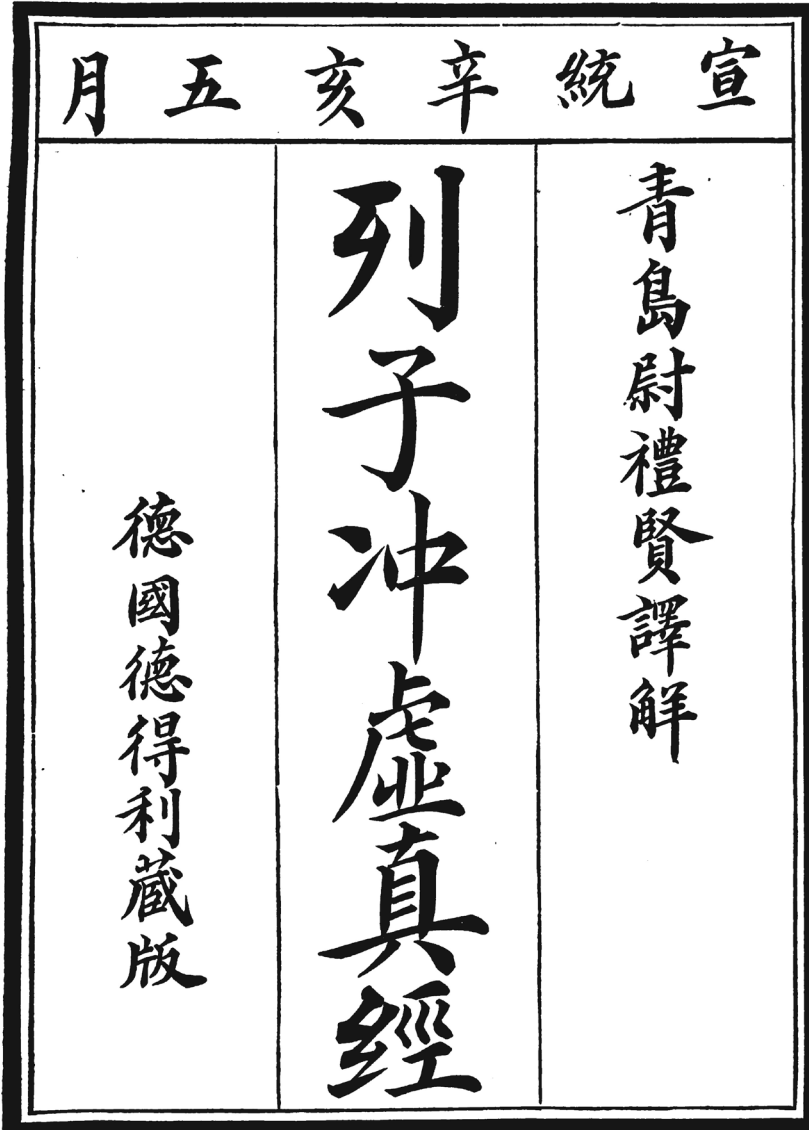 宣統辛亥五月
青島尉禮賢譯解
列子冲虛真經
德國德得利藏版